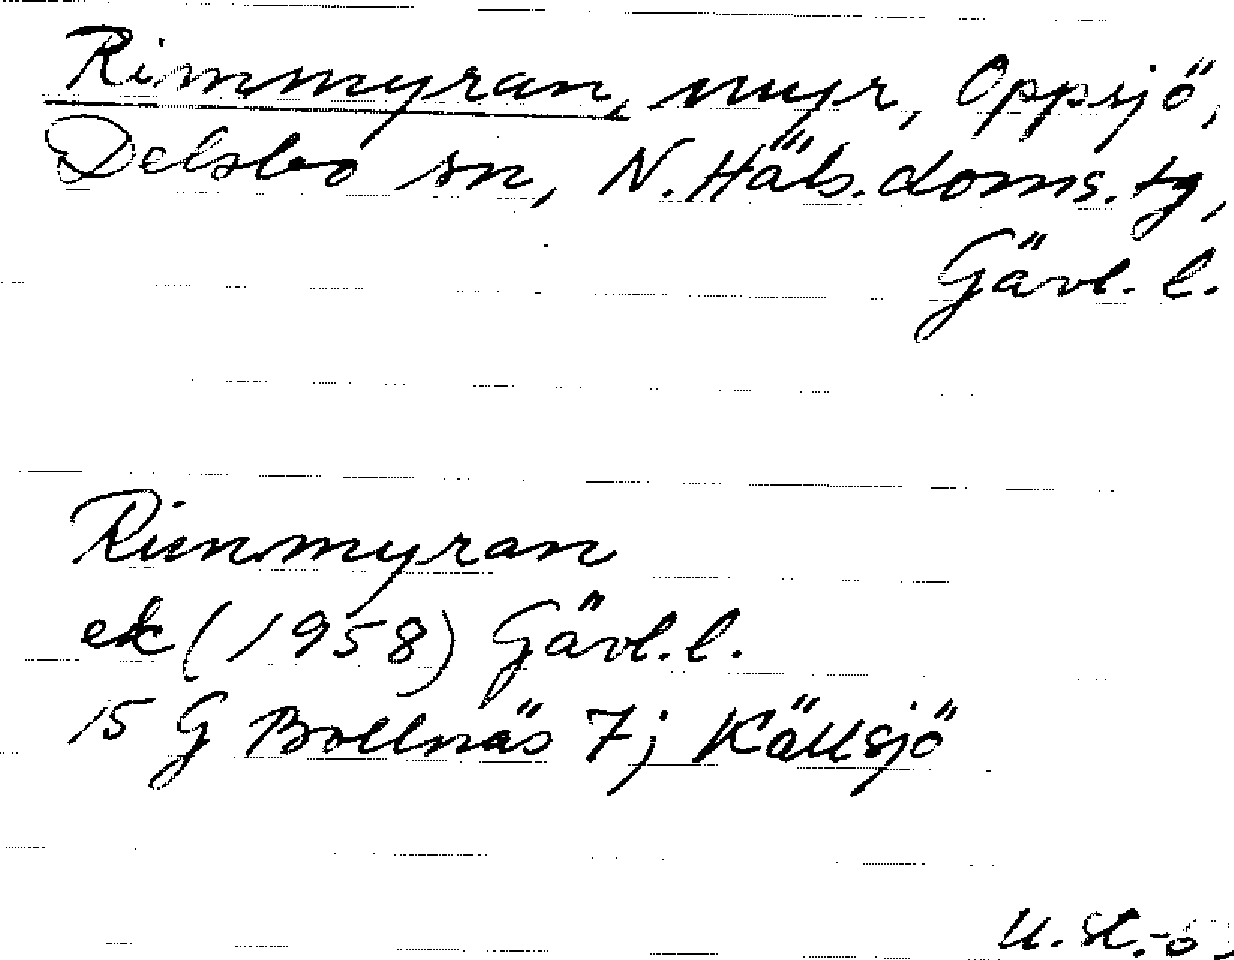 Rimmyran, myr, Oppsjö,
Delsbo sn, N. Häls. doms. tg,
Gävl. l.
Rimmyran
ek (1958) Gävl. l.
15 G Bollnäs 7j Källsjö